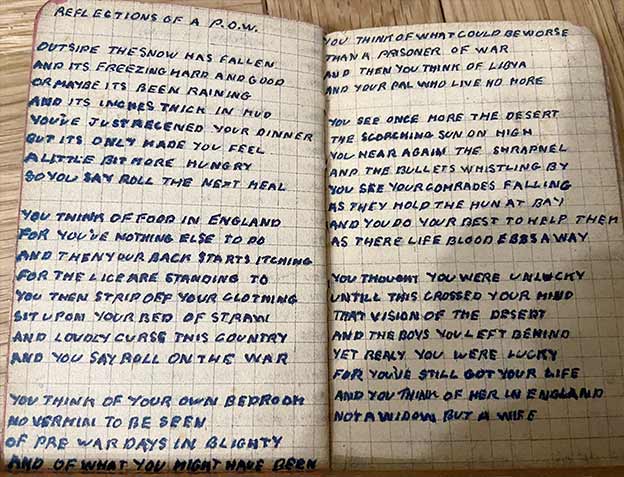 REFLECTIONS OF A P.O.W.
OUTSIDE THE SNOW HAS FALLEN
AND ITS FREEZING HARD AND GOOD
OR MAYBE ITS BEEN RAINING
AND ITS INCHES THICK IN MUD
YOU'VE JUST RECEIVED YOUR DINNER
BUT ITS ONLY MADE YOU FEEL
A LITTLE BIT MORE HUNGRY
SO YOU SAY ROLL THE NEXT MEAL
YOU THINK OF FOOD IN ENGLAND
FOR YOU'VE NOTHING ELSE TO DO
AND THEN YOUR BACK STARTS ITCHING
FOR THE LICE ARE STANDING TO
YOU THEN STRIP OFF YOUR CLOTHING
SIT UPON YOUR BED OF STRAW
AND LOUDLY CURSE THIS COUNTRY
AND YOU SAY ROLL ON THE WAR
YOU THINK OF YOUR OWN BEDROOM
NO VERMIN TO BE SEEN
OF PRE WAR DAYS IN BLIGHTY
AND OF WHAT YOU MIGHT HAVE BEEN
YOU THINK OF WHAT COULD BE WORSE
THAN A PRISONER OF WAR
AND THEN YOU THINK OF LIBYA
AND YOUR PAL WHO LIVE NO MORE
YOU SEE ONCE MORE THE DESERT
THE SCORCHING SUN ON HIGH
YOU HEAR AGAIN THE SHRAPNEL
AND THE BULLETS WHISTLING BY
YOU SEE YOUR COMRADES FALLING
AS THEY HOLD THE HUN AT BAY
AND YOU DO YOUR BEST TO HELP THEM
AS THERE LIFE BLOOD EBBS AWAY
YOU THOUGHT YOU WERE UNLUCKY
UNTILL THIS CROSSED YOUR MIND
THAT VISION OF THE DESERT
AND THE BOYS YOU LEFT BEHIND
YET REALY YOU WERE LUCKY
FOR YOU'VE STILL GOT YOUR LIFE
AND YOU THINK OF HER IN ENGLAND
NOT A WIDOW BUT A WIFE